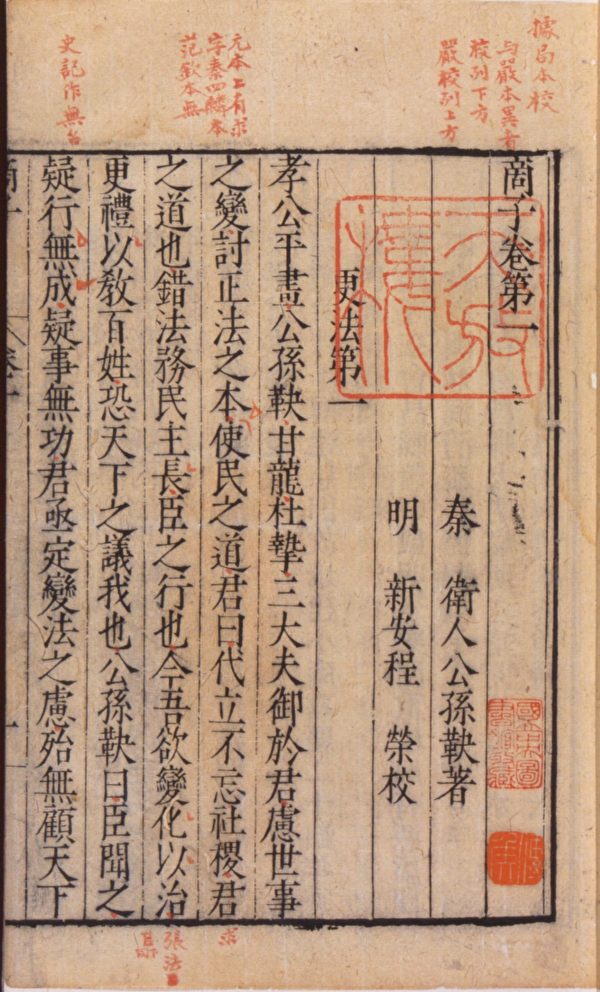 據局本校
與嚴本異者
校列下方
嚴校列上方
元本上有求
字秦四麟本
范欽本無
史記作無名
商子卷第一
秦 衛人公孫鞅著
明 新安程 榮校
更法第一
孝公平畫公孫鞅甘龍杜摯三大夫御於君慮世事
之變討正法之本使民之道君曰代立不忘社稷君
之道也錯法務民主長臣之行也今吾欲變化以治
更禮以教百姓恐天下之議我也公孫鞅曰臣聞之
疑行無成疑事無功君亟定變法之慮殆無顧天下
求
張法